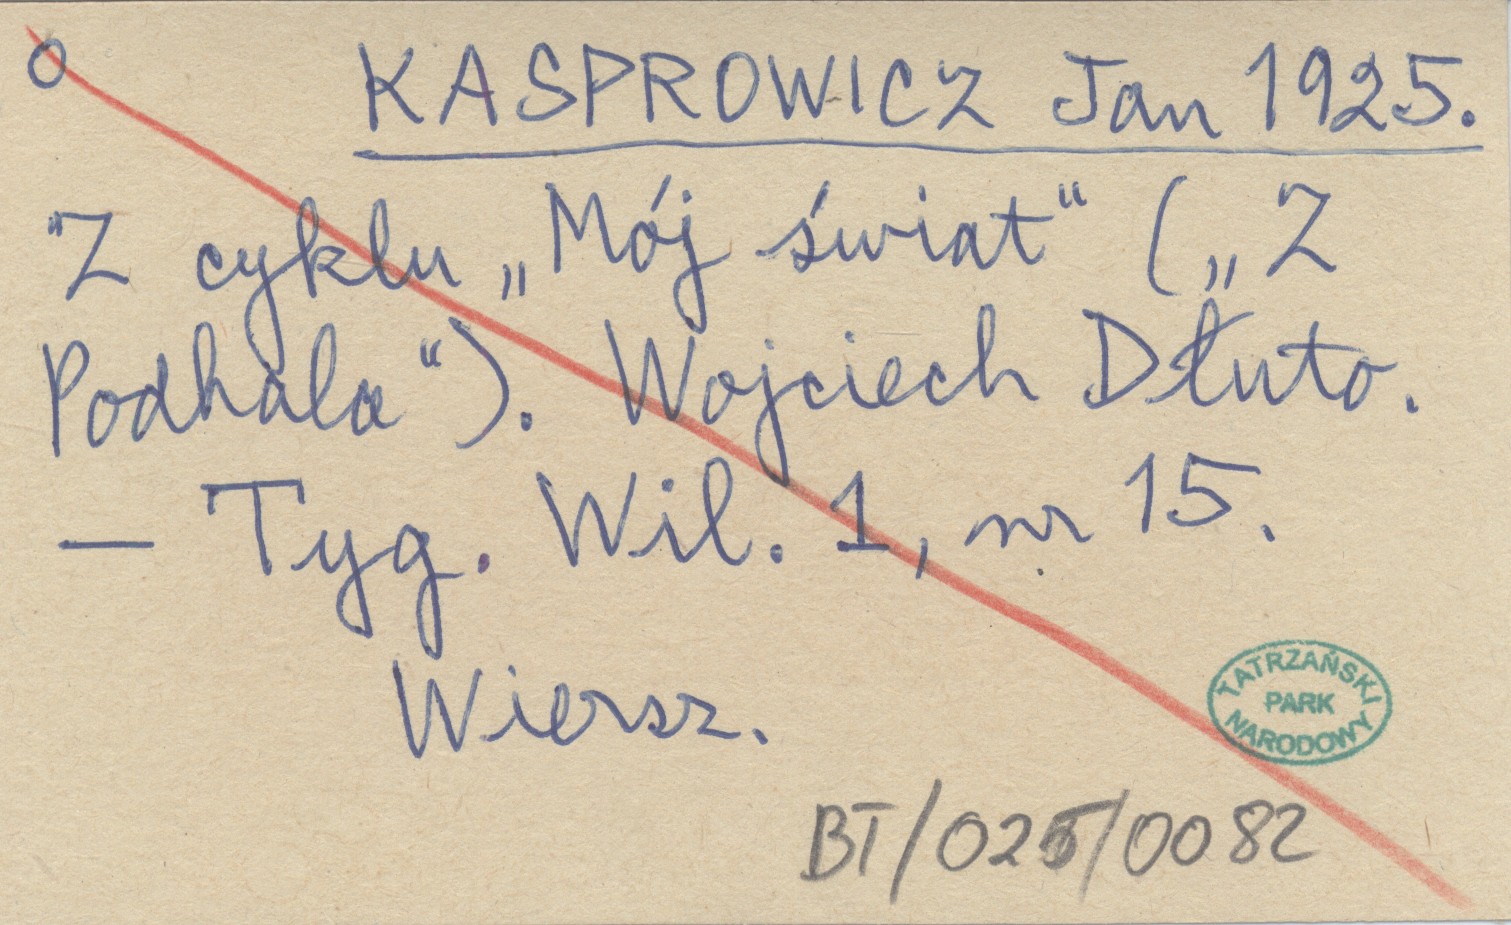 O
KASPROWICZ Jan 1925.
Z cyklu „Mój świat“ („Z
Podhala“). Wojciech Dłuto.
— Tyg. Wil. 1, nr 15.
Wiersz.
TATRZAŃSKI
PARK
NARODOWY